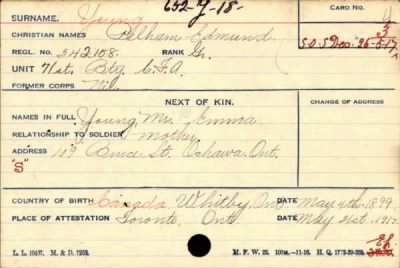 652-Y-18-
SURNAME. Young CARD NO.
CHRISTIAN NAMES Pelham Edmund 3
REGL. NO. 342108. RANK Gr. S.O.S. Dec. 26-5-17
UNIT 71st. Bty C.F.A.
FORMER CORPS Nil.
NEXT OF KIN. CHANGE OF ADDRESS
NAMES IN FULL Young Mrs. Emma
RELATIONSHIP TO SOLDIER Mother
ADDRESS 109 Bruce St. Oshawa. Ont.
"S"
COUNTRY OF BIRTH Canada Whitby, Ont DATE May 4th. 1899
PLACE OF ATTESTATION Toronto Ont DATE May 21st. 1917.
L. L. M. & D. M. F. W. 22. H. Q.